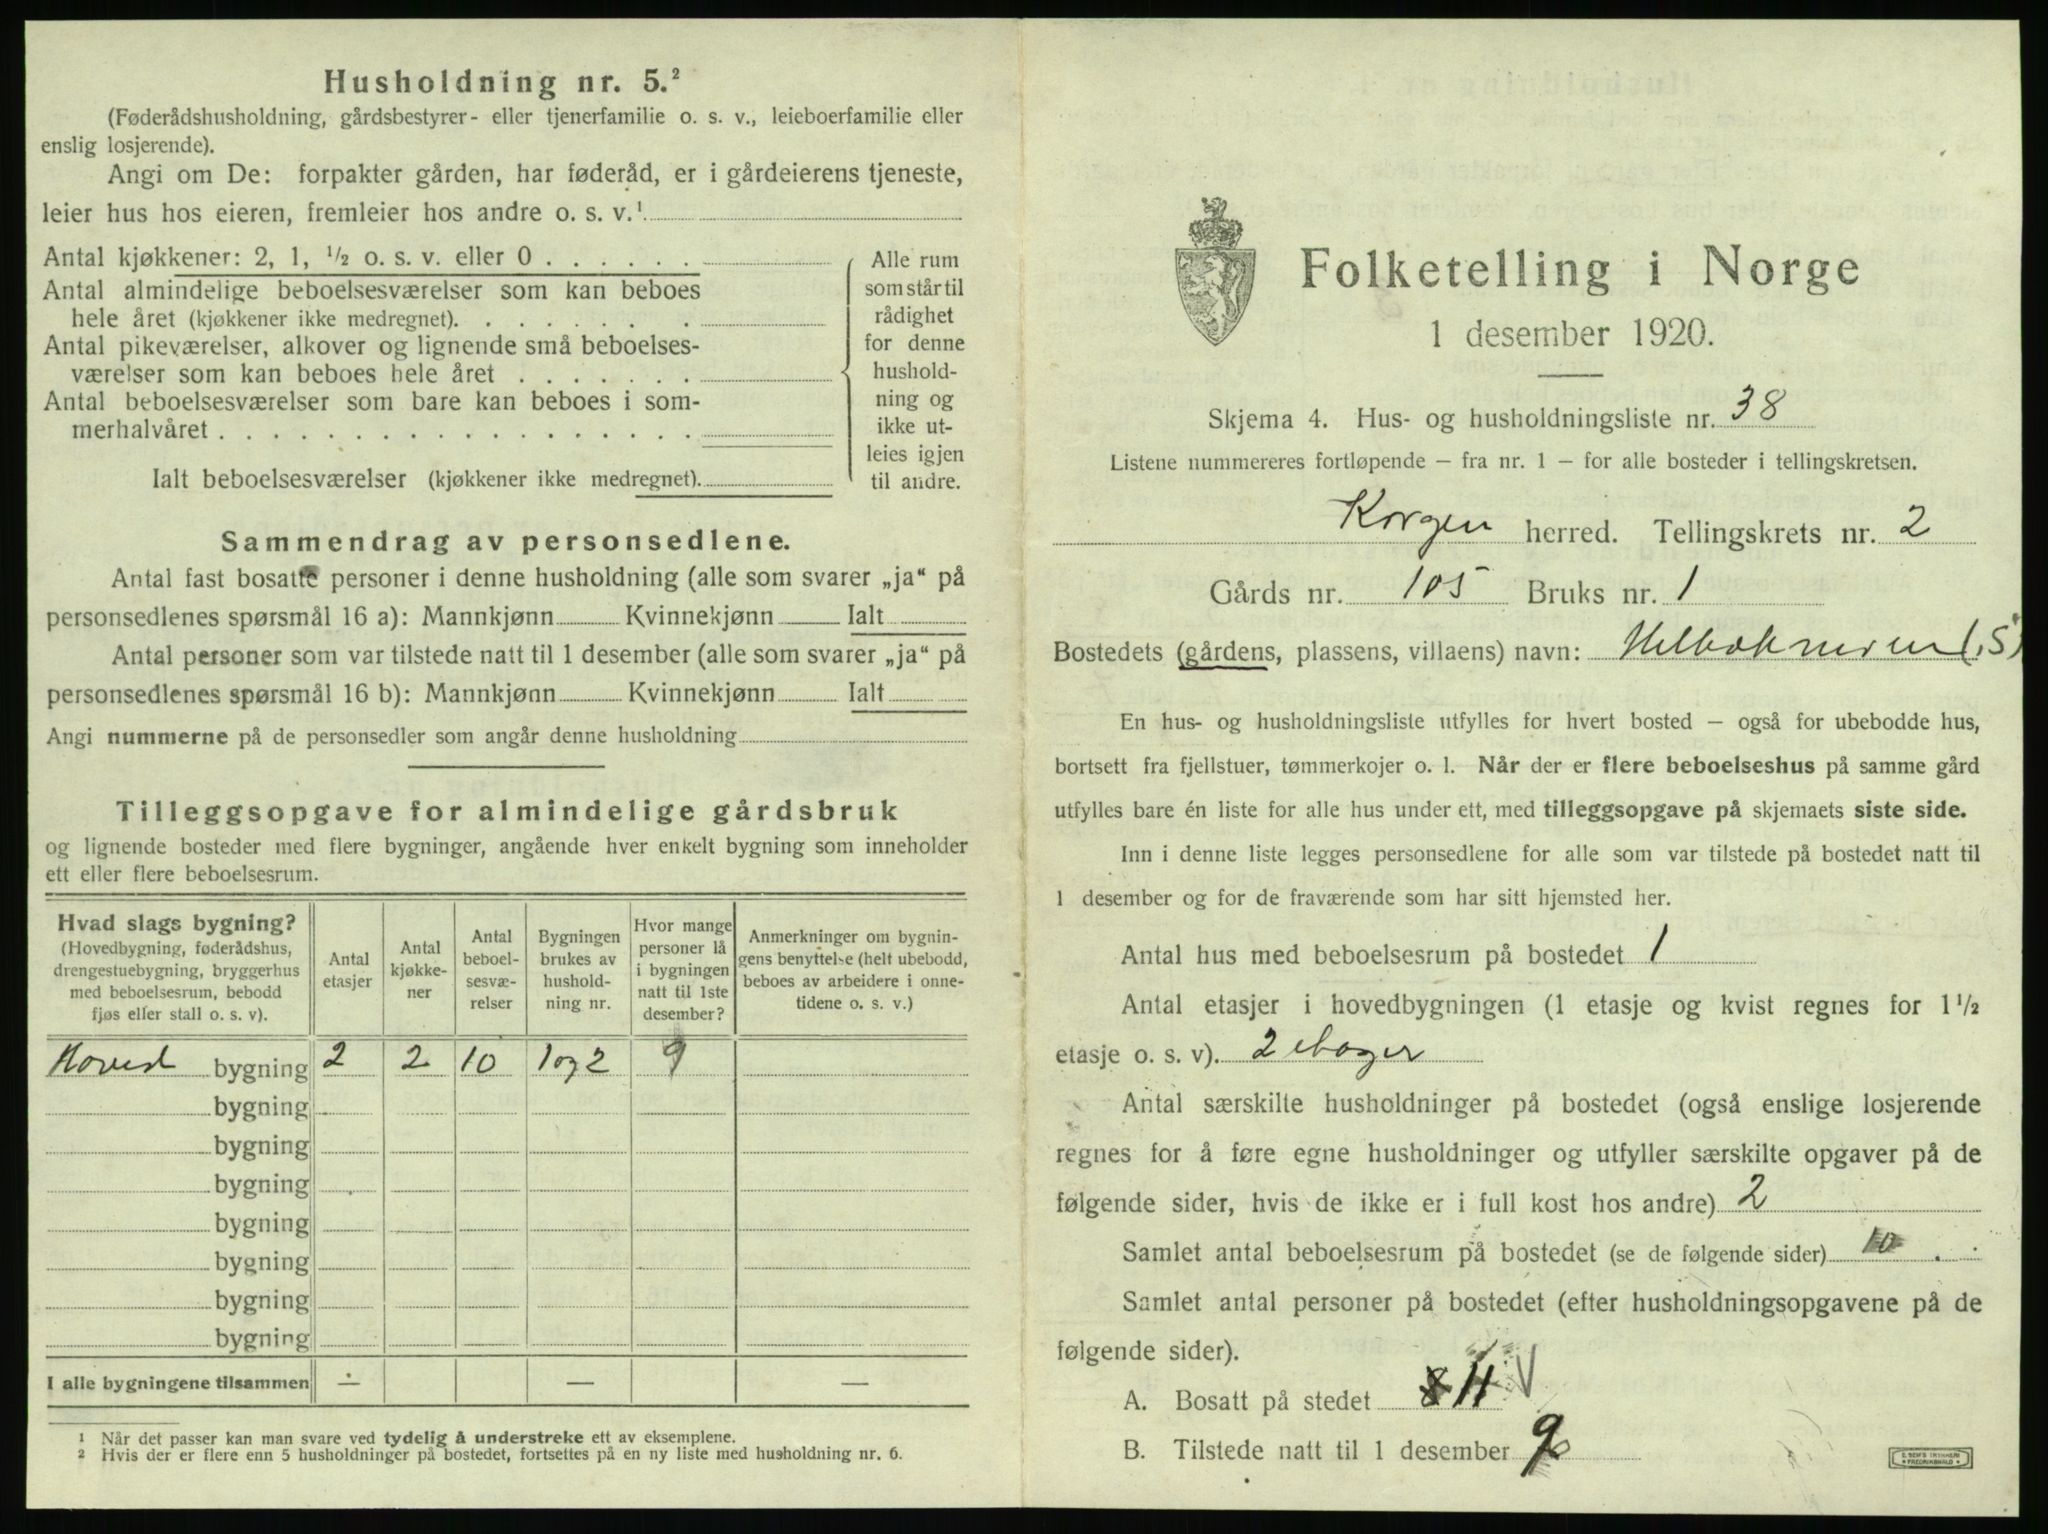 Husholdning nr. 5.²
(Føderådshusholdning, gårdsbestyrer- eller tjenerfamilie o. s. v., leieboerfamilie eller
enslig losjerende).
Angi om De: forpakter gården, har føderåd, er i gårdeierens tjeneste,
leier hus hos eieren, fremleier hos andre o. s. v.¹
Antal kjøkkener: 2, 1, ½ o. s. v. eller 0 . . . . . .
Antal almindelige beboelsesværelser som kan beboes
hele året (kjøkkener ikke medregnet). . . . . . . .
Antal pikeværelser, alkover og lignende små beboelses-
værelser som kan beboes hele året . . . . . . .
Antal beboelsesværelser som bare kan beboes i som-
merhalvåret . . . . . . . . . . . . . . . . . .
Ialt beboelsesværelser (kjøkkener ikke medregnet).
Alle rum
som står til
rådighet
for denne
hushold-
ning og
ikke ut-
leies igjen
til andre.
Sammendrag av personsedlene.
Antal fast bosatte personer i denne husholdning (alle som svarer „ja“ på
personsedlenes spørsmål 16 a): Mannkjønn Kvinnekjønn Ialt
Antal personer som var tilstede natt til 1 desember (alle som svarer „ja“ på
personsedlenes spørsmål 16 b): Mannkjønn Kvinnekjønn Ialt
Angi nummerne på de personsedler som angår denne husholdning
Tilleggsopgave for almindelige gårdsbruk
og lignende bosteder med flere bygninger, angående hver enkelt bygning som inneholder
ett eller flere beboelsesrum.
Hvad slags bygning?
(Hovedbygning, føderådshus,
drengestuebygning, bryggerhus
med beboelsesrum, bebodd
fjøs eller stall o. s. v).
Antal
etasjer
Antal
kjøkke-
ner
Antal
beboel-
sesvæ-
relser
Bygningen
brukes av
hushold-
ning nr.
Hvor mange
personer lå
i bygningen
natt til 1ste
desember?
Anmerkninger om bygnin-
gens benyttelse (helt ubebodd,
beboes av arbeidere i onne-
tidene o. s. v.)
Hoved bygning 2 2 10 1 og 2 9
bygning
bygning
bygning
bygning
bygning
bygning
bygning
I alle bygningene tilsammen — — —
¹ Når det passer kan man svare ved tydelig å understreke ett av eksemplene.
² Hvis der er flere enn 5 husholdninger på bostedet, fortsettes på en ny liste med husholdning nr. 6.
Folketelling i Norge
1 desember 1920.
Skjema 4. Hus- og husholdningsliste nr. 38
Listene nummereres fortløpende — fra nr. 1 — for alle bosteder i tellingskretsen.
Korgen herred. Tellingskrets nr. 2
Gårds nr. 105 Bruks nr. 1
Bostedets (gårdens, plassens, villaens) navn:
En hus- og husholdningsliste utfylles for hvert bosted — også for ubebodde hus,
bortsett fra fjellstuer, tømmerkojer o. l. Når der er flere beboelseshus på samme gård
utfylles bare én liste for alle hus under ett, med tilleggsopgave på skjemaets siste side.
Inn i denne liste legges personsedlene for alle som var tilstede på bostedet natt til
1 desember og for de fraværende som har sitt hjemsted her.
Antal hus med beboelsesrum på bostedet 1
Antal etasjer i hovedbygningen (1 etasje og kvist regnes for 1½
etasje o. s. v). 2 etager
Antal særskilte husholdninger på bostedet (også enslige losjerende
regnes for å føre egne husholdninger og utfyller særskilte opgaver på de
følgende sider, hvis de ikke er i full kost hos andre) 2
Samlet antal beboelsesrum på bostedet (se de følgende sider) 10
Samlet antal personer på bostedet (efter husholdningsopgavene på de
følgende sider).
A. Bosatt på stedet 8 11 V
B. Tilstede natt til 1 desember 9